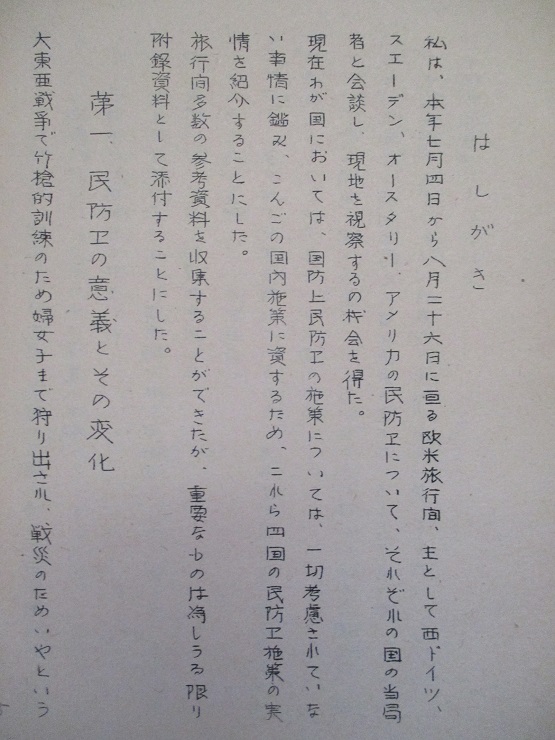 はしがき
私は、本年七月四日から八月二十六日に亘る欧米旅行間、主として西ドイツ、
スエーデン、オースタリー、アメリカの民防卫について、それぞれの国の当局
者と会談し、現地を視察するの机会を得た。
現在わが国においては、国防上民防卫の施策については、一切考慮されていな
い事情に鑑み、こんごの国内施策に資するため、これら四国の民防卫施策の実
情を紹介することにした。
旅行間多数の参考資料を収集することができたが、重要なものは為しうる限り
附録資料として添付することにした。
第一、民防卫の意義とその変化
大東亜戦争で竹槍的訓練のため婦女子まで狩り出され、戦災のためいやという